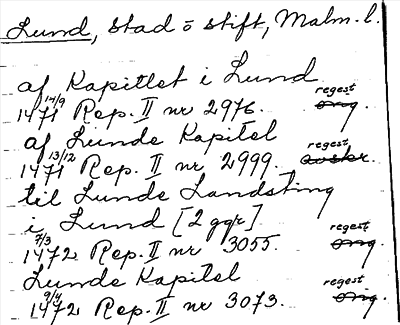 Lund, stad o stift, Malm. l.
af Kapitlet i Lund
1471 14/9 Rep. II nr 2976. regest orig.
af Lunde Kapitel
1471 13/12 Rep. II nr 2999. regest avskr.
til Lunde Landsting
i Lund [2 ggr]
1472 7/3 Rep. II nr 3055. regest orig.
Lunde Kapitel
1472 9/4 Rep. II nr 3073. regest orig.